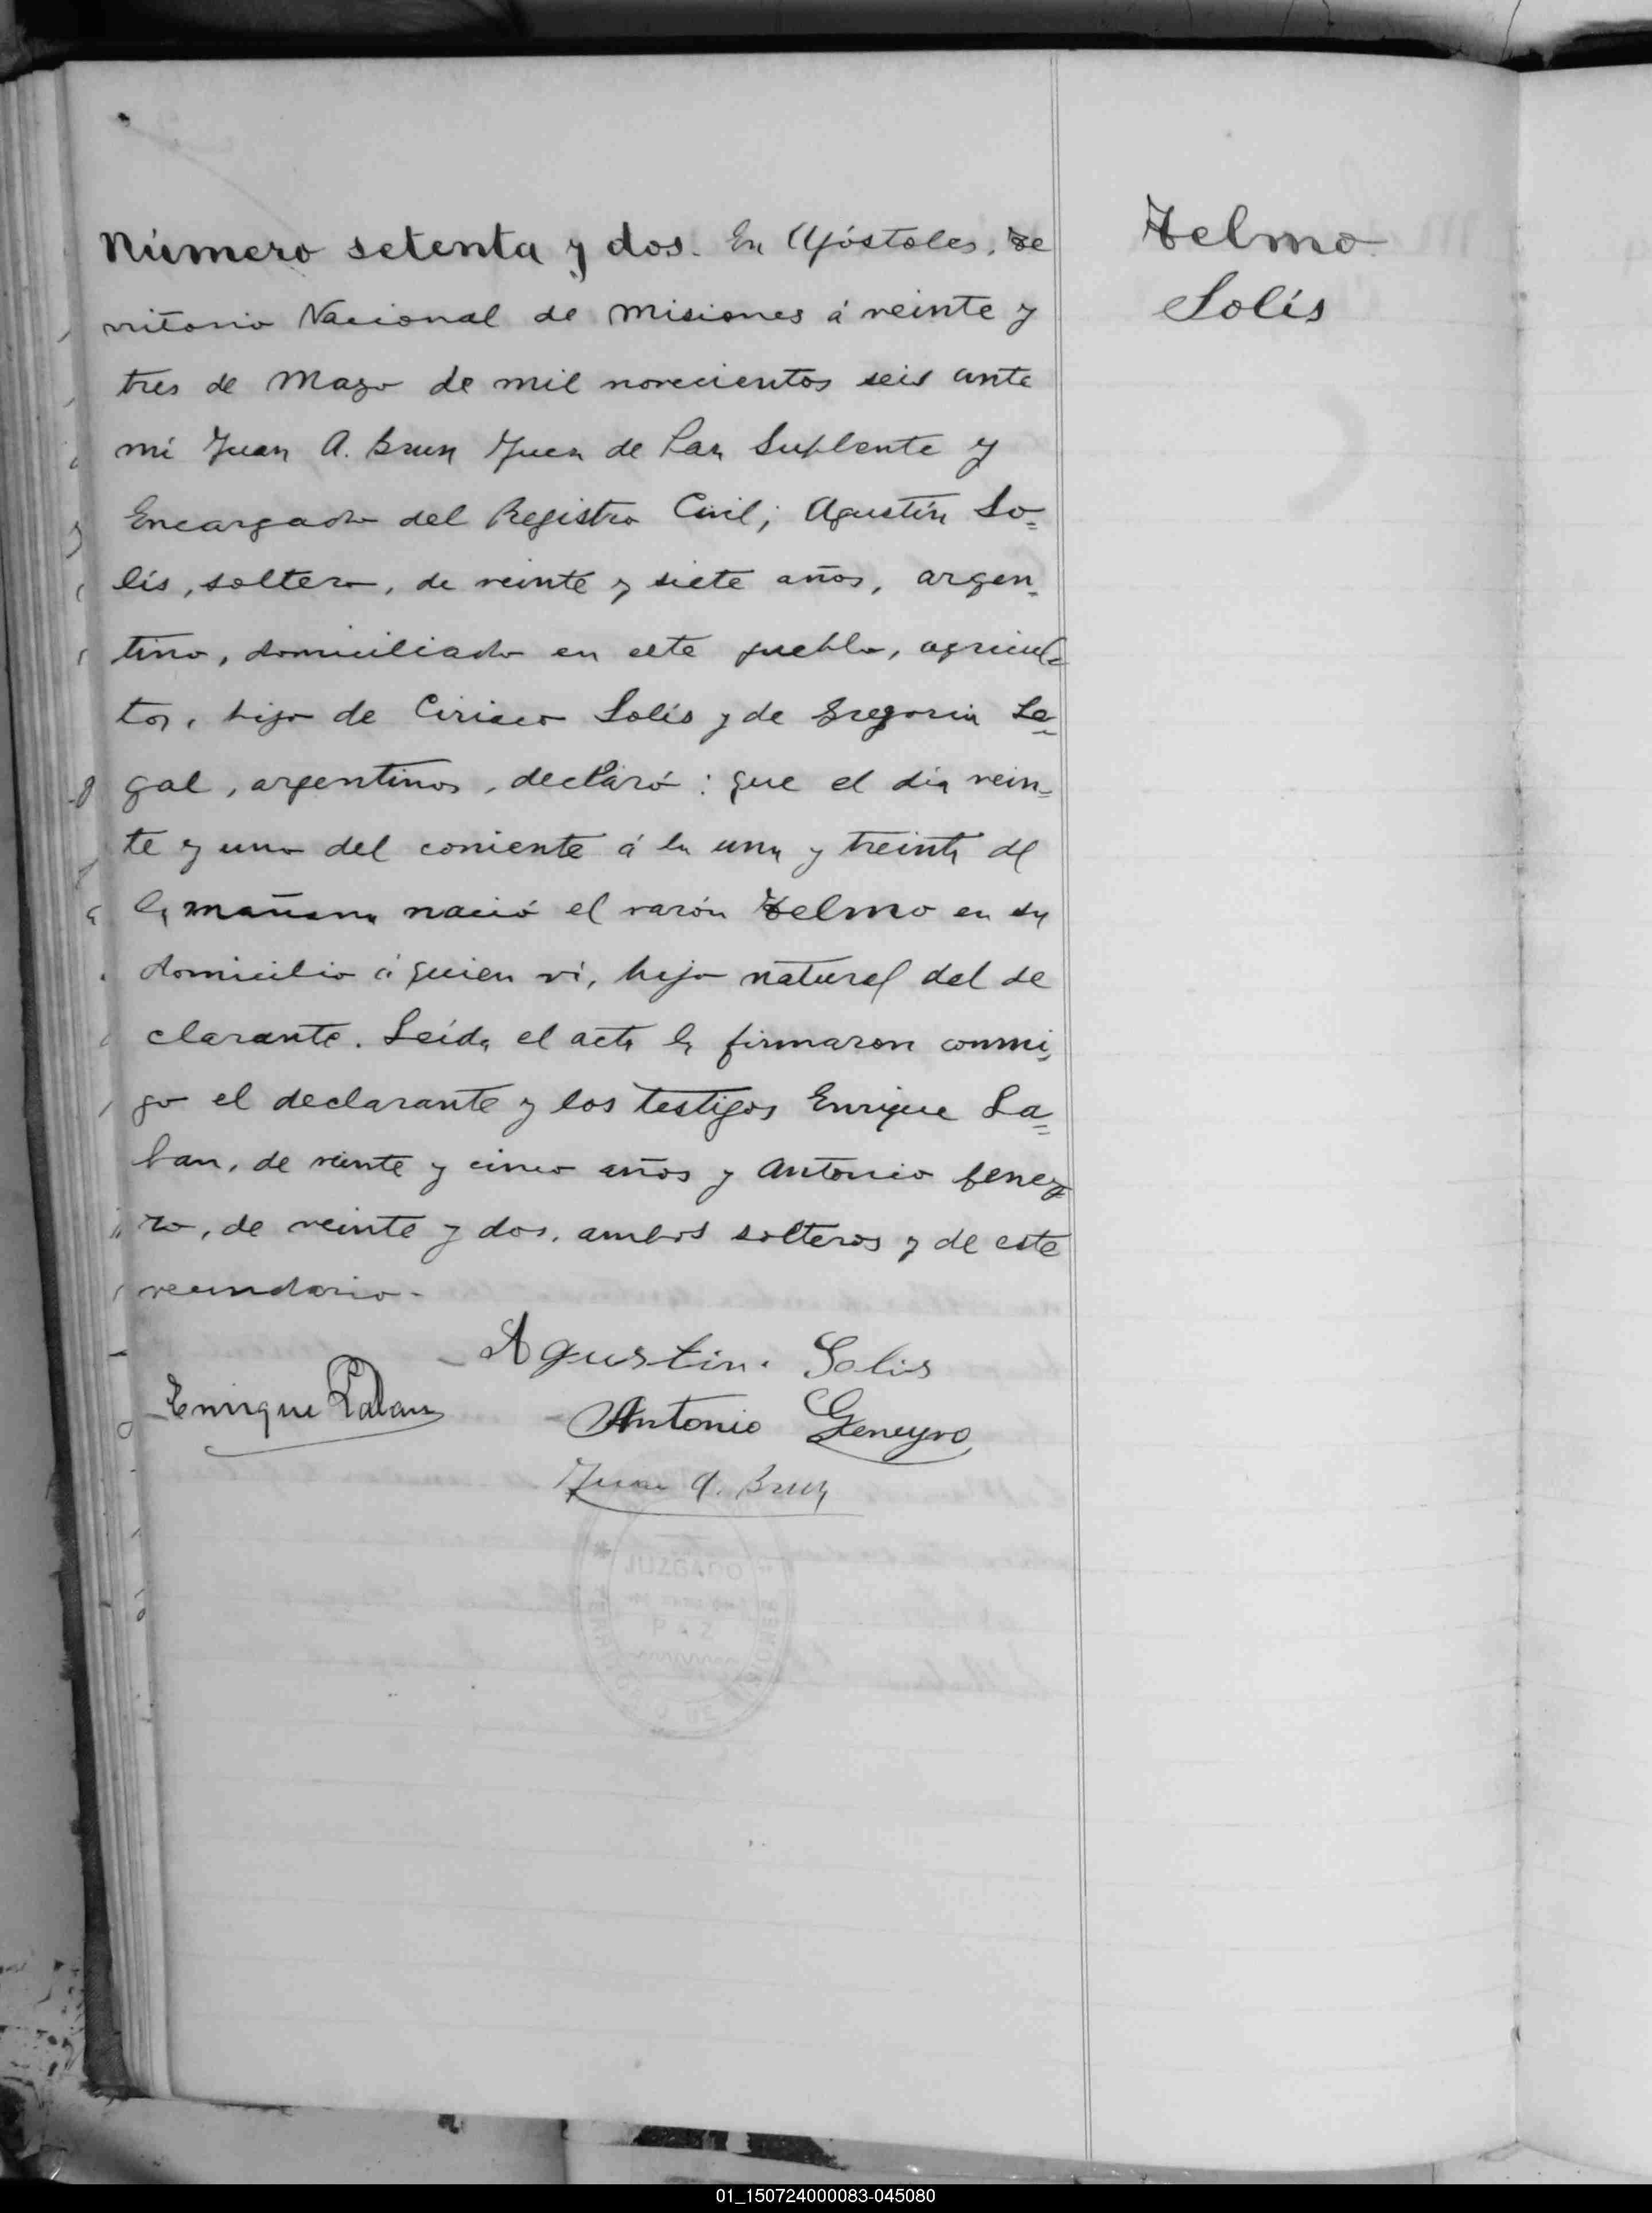 Número setenta y dos. En Apóstoles, Te
Telmo
Solís
rritorio Nacional de Misiones á veinte y
tres de Mayo de mil novecientos seis ante
mi Juan A. Brun Juez de Paz Suplente y
Encargado del Registro Civil; Agustín So=
lís, soltero, de veinte y siete años, argen=
tino, domiciliado en este pueblo, agricul=
tor, hijo de Ciriaco Solís y de Gregoria Le=
gal, argentinos, declaró: que el día vein=
te y uno del corriente á la una y treinta de
la mañana nació el varón Telmo en su
domicilio á quien ví, hijo natural del de
clarante. Leída el acta la firmaron conmi=
go el declarante y los testigos Enrique La=
ban, de veinte y cinco años y Antonio Geney=
ro, de veinte y dos, ambos solteros y de este
vecindario.-
Agustin. Solis
Enrique Laban
Antonio Geneyro
Juan A. Brun
JUZGADO
PAZ
01_150724000083-045080